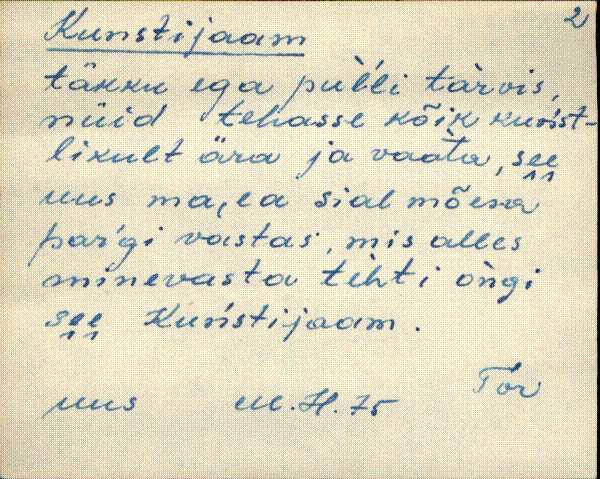 2
Kunstijaam
täkku ega pùl̀li tàrvis,
nüid tehasse kõik kuńst-
likult ära ja vaàta, see
uus ma,ea sial mõesa
paŕgi vastas, mis alles
minevasta tèhti òngi
see Kuństijaam.
Tor
uus M.H.75